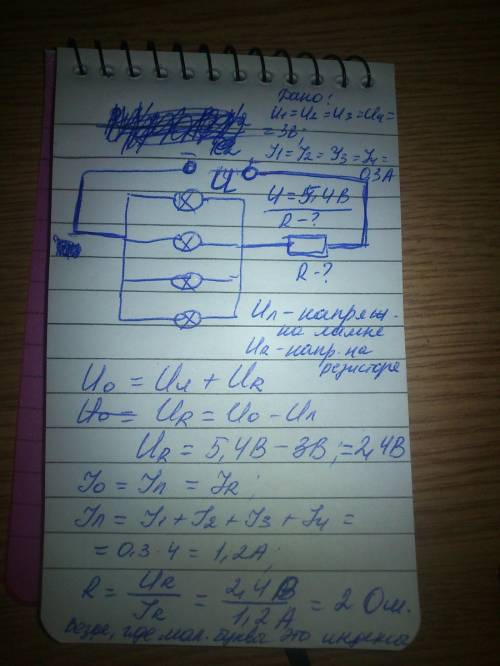 Дано:
U1=U2=U3=U4=
=3В;
I1=I2=I3=I4=
0,3А
U
U=5,4В
R-?
R-?
Uл-напряж-
на лампе
UR-напр. на
резисторе
U0 = Uл + UR
UR = U0 - Uл
UR = 5,4В - 3В = 2,4В
I0 = Iл = IR;
Iл = I1 + I2 + I3 + I4 =
= 0,3 · 4 = 1,2А;
R = UR/IR = 2,4В/1,2А = 2 Ом.
везде, где мал. буква это индекс